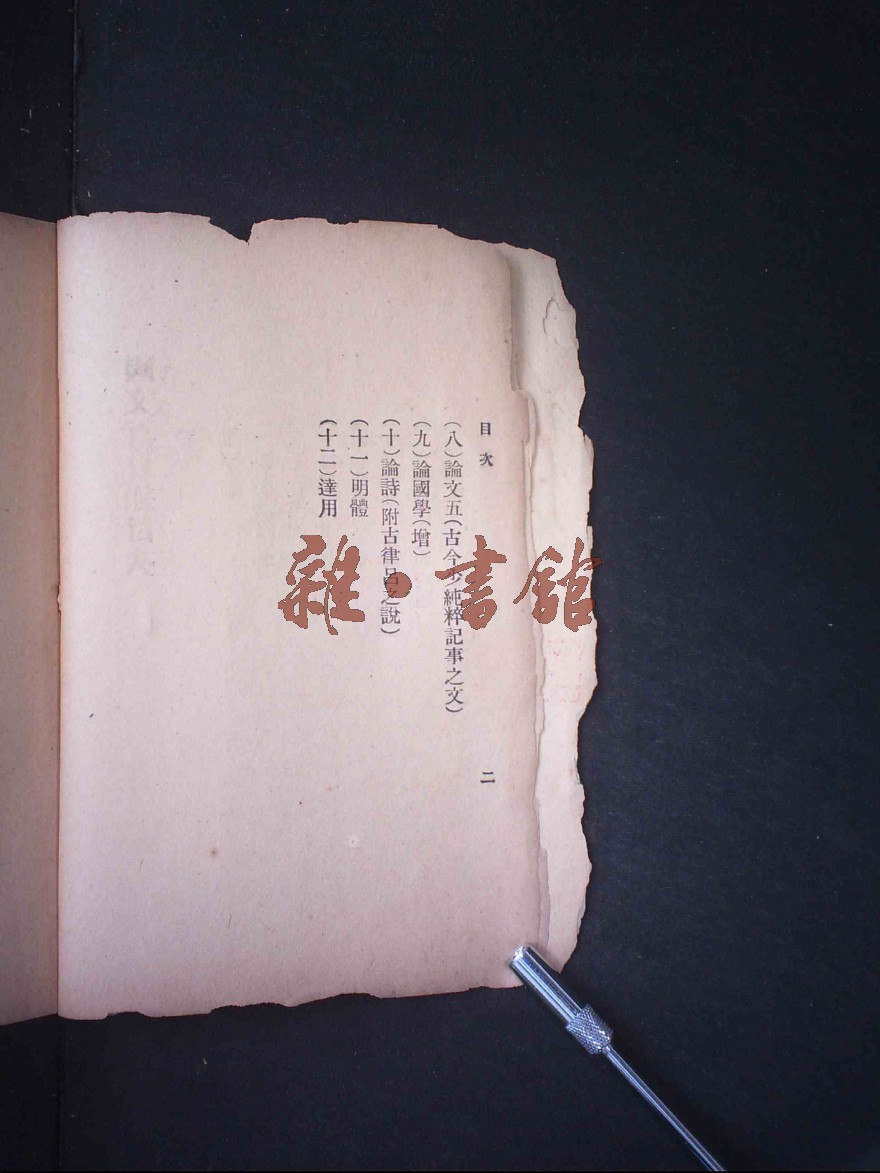 目次
二
(八)論文五(古今少純粹記事之文)
(九)論國學(增)
(十)論詩(附古律呂之說)
(十一)明體
(十二)達用
雜·書館